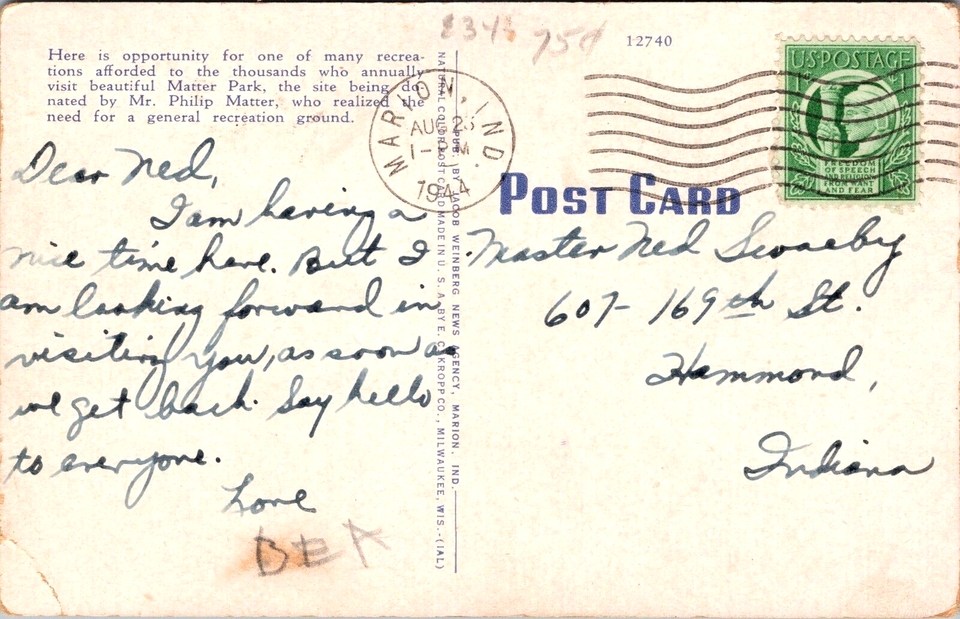 Here is opportunity for one of many recrea-
tions afforded to the thousands who annually
visit beautiful Matter Park, the site being do-
nated by Mr. Philip Matter, who realized the
need for a general recreation ground.
Dear Ned,
I am having a
nice time here. But I
am looking forward in
visiting you, as soon as
we get back. Say hello
to everyone.
Love
BEA
NATURAL COLOR POST CARD MADE IN U. S. A. BY E. C. KROPP CO., MILWAUKEE, WIS.-(IAL)
PUB. BY JACOB WEINBERG NEWS AGENCY, MARION, IND.
75¢
12740
MARION, IND.
AUG 23
1944
U.S. POSTAGE
FREEDOM
OF SPEECH
AND RELIGION
FROM WANT
AND FEAR
POST CARD
Master Ned
607- 169th St.
Hammond,
Indiana